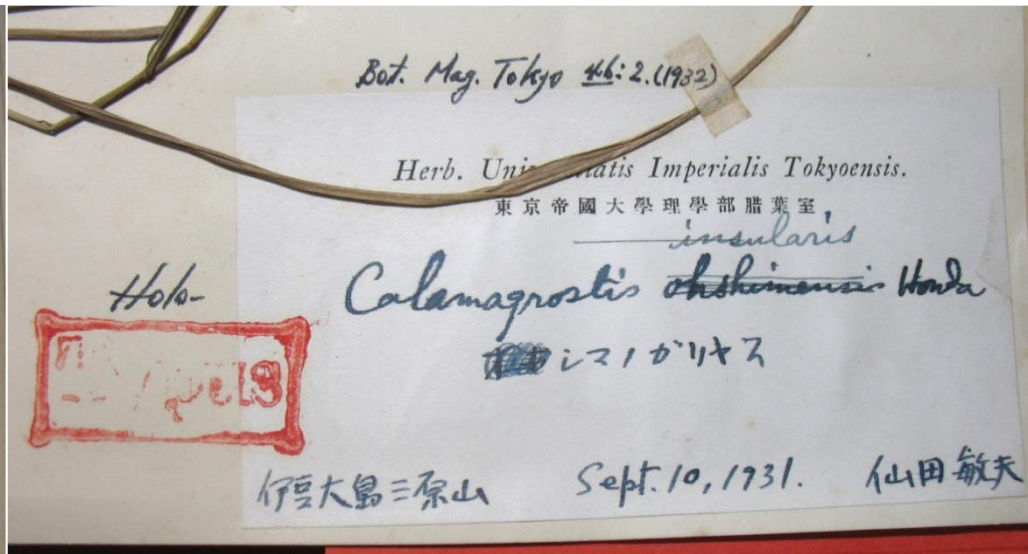 Bot. Mag. Tokyo 46: 2. (1932)
Herb. Imperialis Tokyoensis.
東京帝國大學理學部腊葉室
insularis
Holo-
Calamagrostis ohshimensis Honda
シマノガリヤス
伊豆大島三原山 Sept. 10, 1931. 仙田敏夫